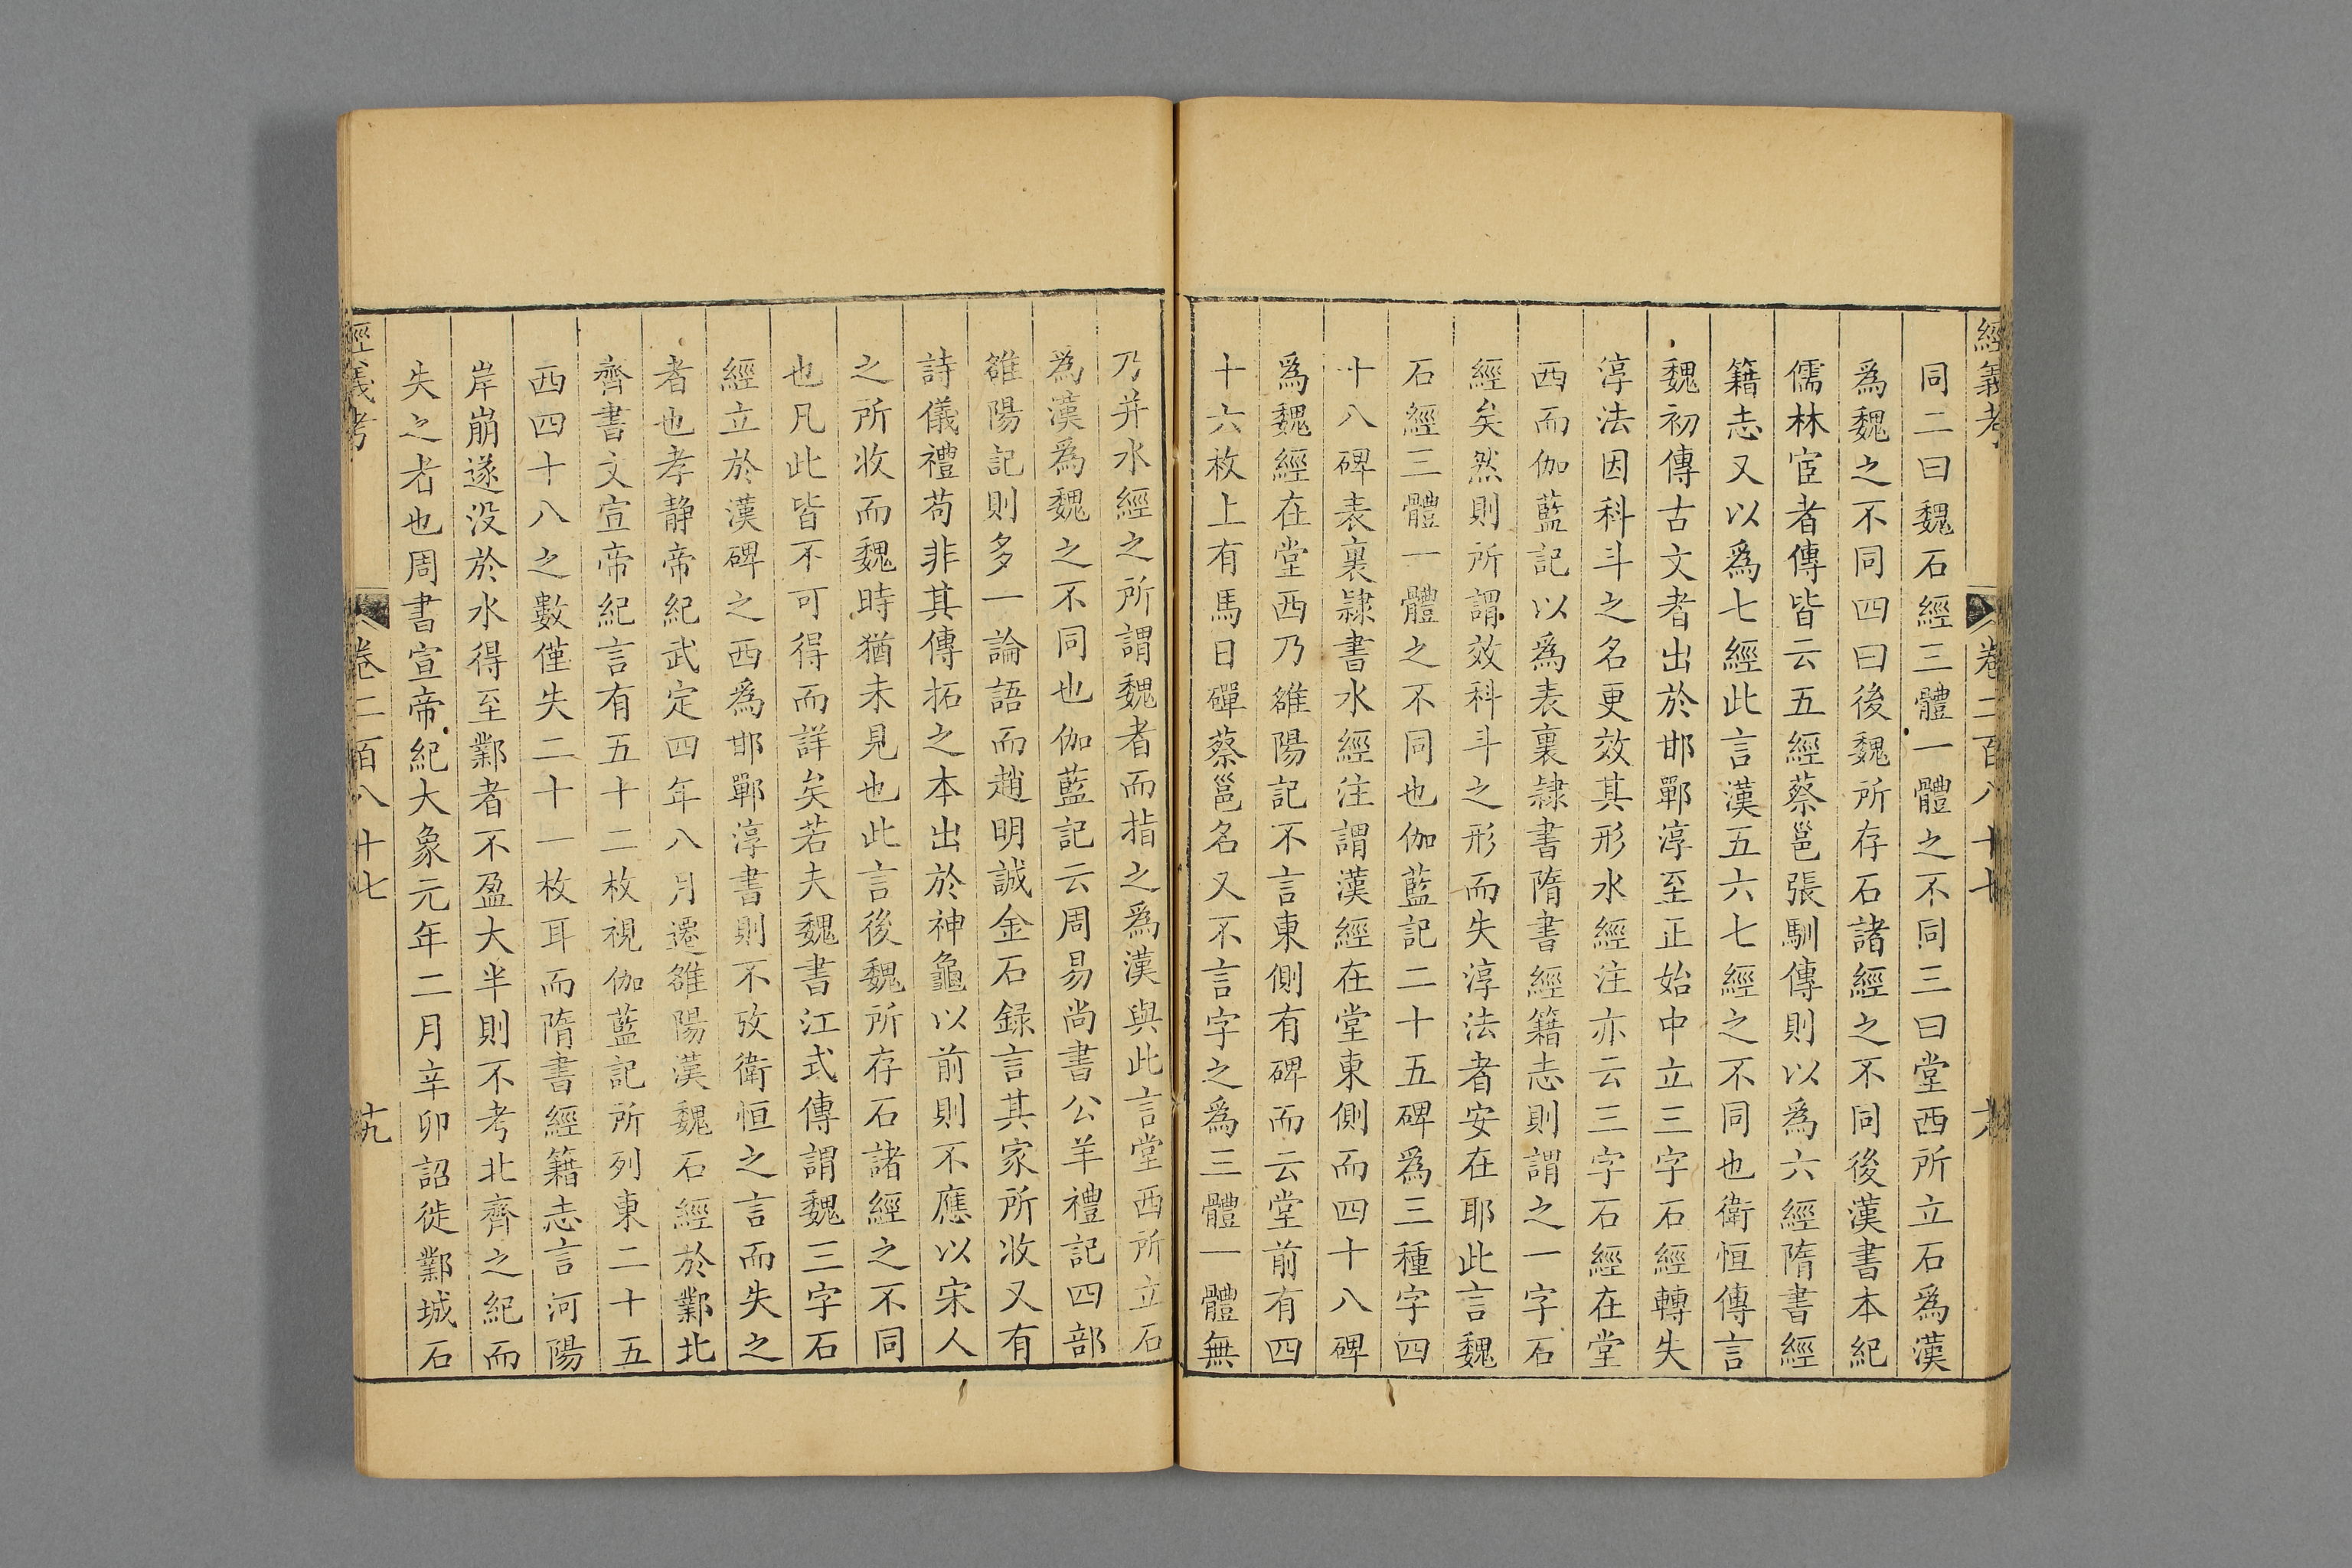 經義考
卷二百八十七
同二曰魏石經三體一體之不同三曰堂西所立石爲漢
爲魏之不同四曰後魏所存石諸經之不同後漢書本紀
儒林宦者傳皆云五經蔡邕張馴傳則以爲六經隋書經
籍志又以爲七經此言漢五六七經之不同也衛恒傳言
魏初傳古文者出於邯鄲淳至正始中立三字石經轉失
淳法因科斗之名更效其形水經注亦云三字石經在堂
西而伽藍記以爲表裏隸書隋書經籍志則謂之一字石
經矣然則所謂效科斗之形而失淳法者安在耶此言魏
石經三體一體之不同也伽藍記二十五碑爲三種字四
十八碑表裏隸書水經注謂漢經在堂東側而四十八碑
爲魏經在堂西乃雒陽記不言東側有碑而云堂前有四
十六枚上有馬日磾蔡邕名又不言字之爲三體一體無
乃并水經之所謂魏者而指之爲漢與此言堂西所立石
為漢爲魏之不同也伽藍記云周易尚書公羊禮記四部
雒陽記則多一論語而趙明誠金石録言其家所收又有
詩儀禮苟非其傳拓之本出於神龜以前則不應以宋人
之所收而魏時猶未見也此言後魏所存石諸經之不同
也凡此皆不可得而詳矣若夫魏書江式傳謂魏三字石
經立於漢碑之西爲邯鄲淳書則不攷衛恒之言而失之
者也孝静帝紀武定四年八月遷雒陽漢魏石經於鄴北
齊書文宣帝紀言有五十二枚視伽藍記所列東二十五
西四十八之數僅失二十一枚耳而隋書經籍志言河陽
岸崩遂没於水得至鄴者不盈大半則不考北齊之紀而
失之者也周書宣帝紀大象元年二月辛卯詔徙鄴城石
經義考
卷二百八十七
十九